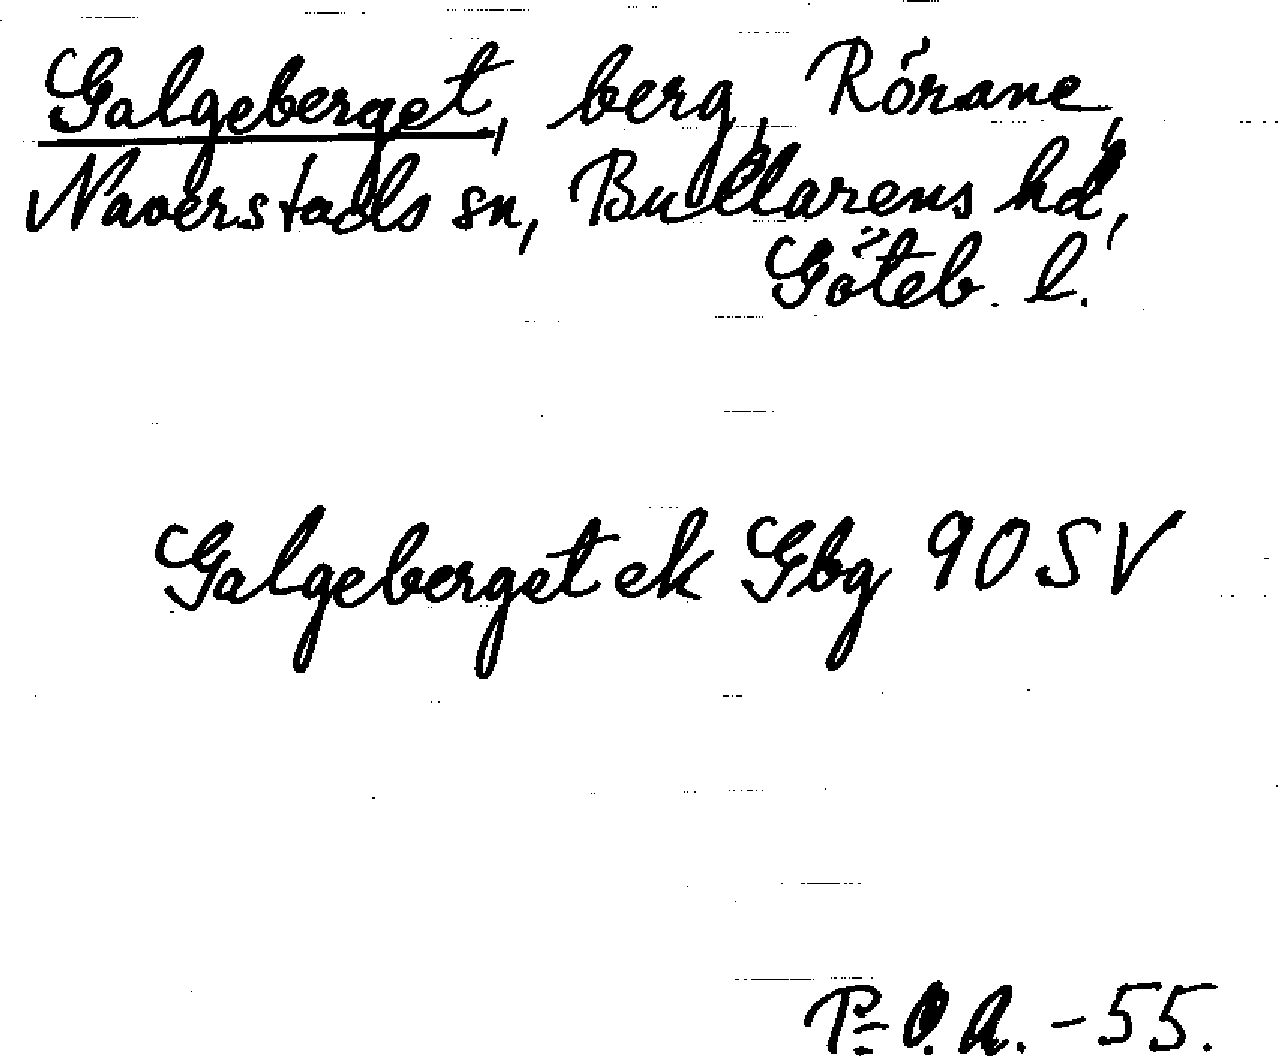 Galgeberget, berg, Rörane,
Naverstads sn, Bullarens hd,
Göteb. l.
Galgeberget ek Gbg 90 SV
P=O.A. -55.